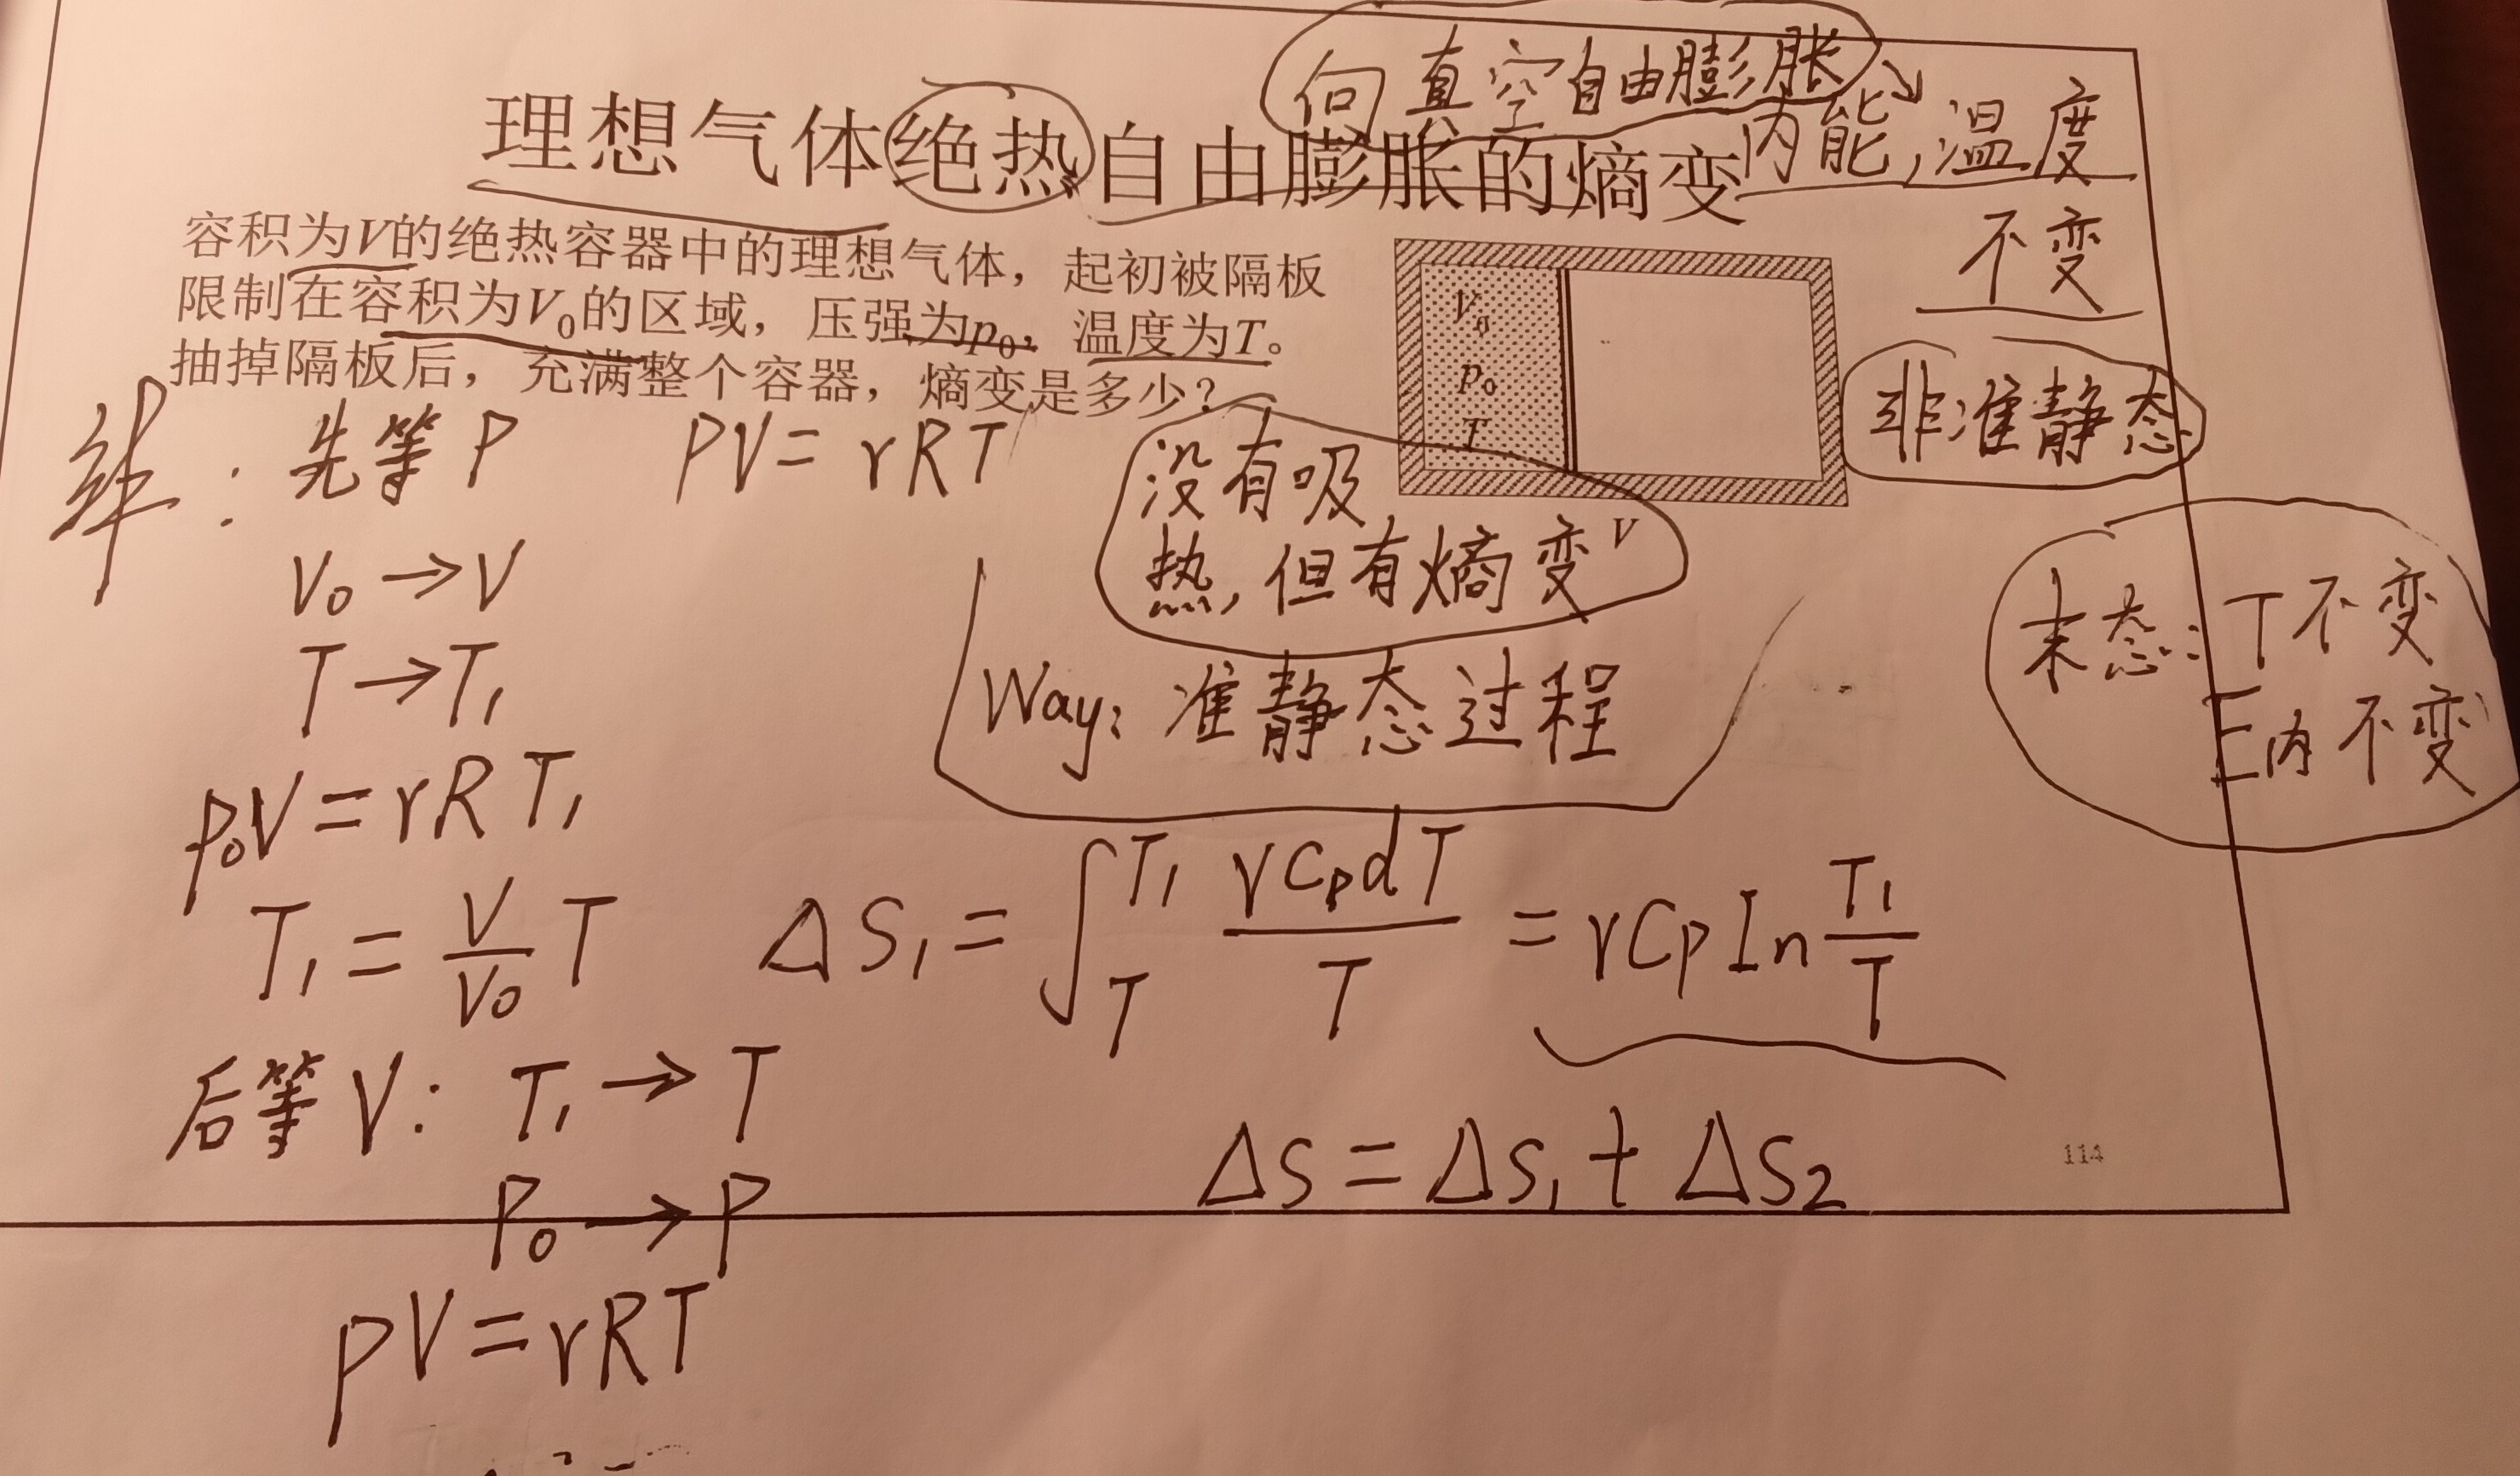 向真空自由膨胀
理想气体绝热自由膨胀的熵变
内能,温度
不变
容积为V的绝热容器中的理想气体，起初被隔板
限制在容积为V₀的区域，压强为p₀，温度为T。
抽掉隔板后，充满整个容器，熵变是多少？
V₀
p₀
T
V
非准静态
先等P
PV=rRT
没有吸
热,但有熵变
V₀→V
T→T₁
Way: 准静态过程
末态: T不变
E内不变
p₀V=rRT₁
T₁=V/V₀ T
ΔS₁=∫_T^T₁ rCpdT/T=rCp In T₁/T
后等V: T₁→T
P₀→P
ΔS=ΔS₁+ΔS₂
114
PV=rRT